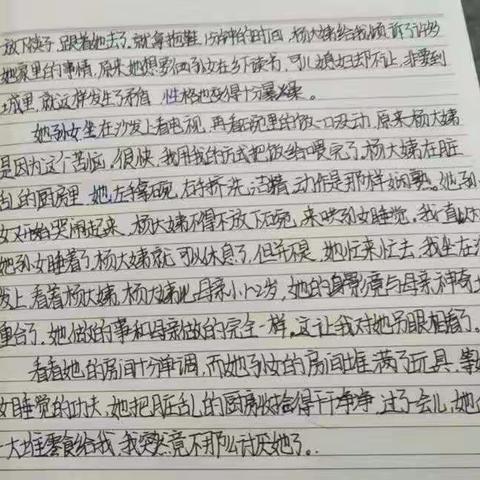 放下筷子，跟着她去了，就拿拖鞋，15分钟的时间，杨大姨给我倾诉了许多
她家里的事情，原来她想要回孙女在乡下读书，可儿媳妇却不让，非要到
城里，就这样发生了矛盾，性格也变得十分暴躁。
她孙女坐在沙发上看电视，再看碗里的饭一口没动，原来杨大姨
是因为这个苦恼，很快，我用我的方式把饭给喂完了，杨大姨在脏
乱的厨房里，她左手拿碗，右手挤洗洁精，动作是那样娴熟。她孙
女又开始哭闹起来，杨大姨不得不放下碗，来哄孙女睡觉，我一直以为
她孙女睡着了，杨大姨就可以休息了，但并不是，她忙来忙去，我坐在沙
发上，看着杨大姨，杨大姨比母亲小12岁，她的身影竟与母亲神奇地
重合了，她做的事和母亲做的完全一样，这让我对她另眼相看了。
看看她的房间十分单调，而她孙女的房间堆满了玩具，等
女睡觉的功夫，她把脏乱的厨房收拾得干干净净，过了一会儿，她
一大堆零食给我，我突然竟不那么讨厌她了。